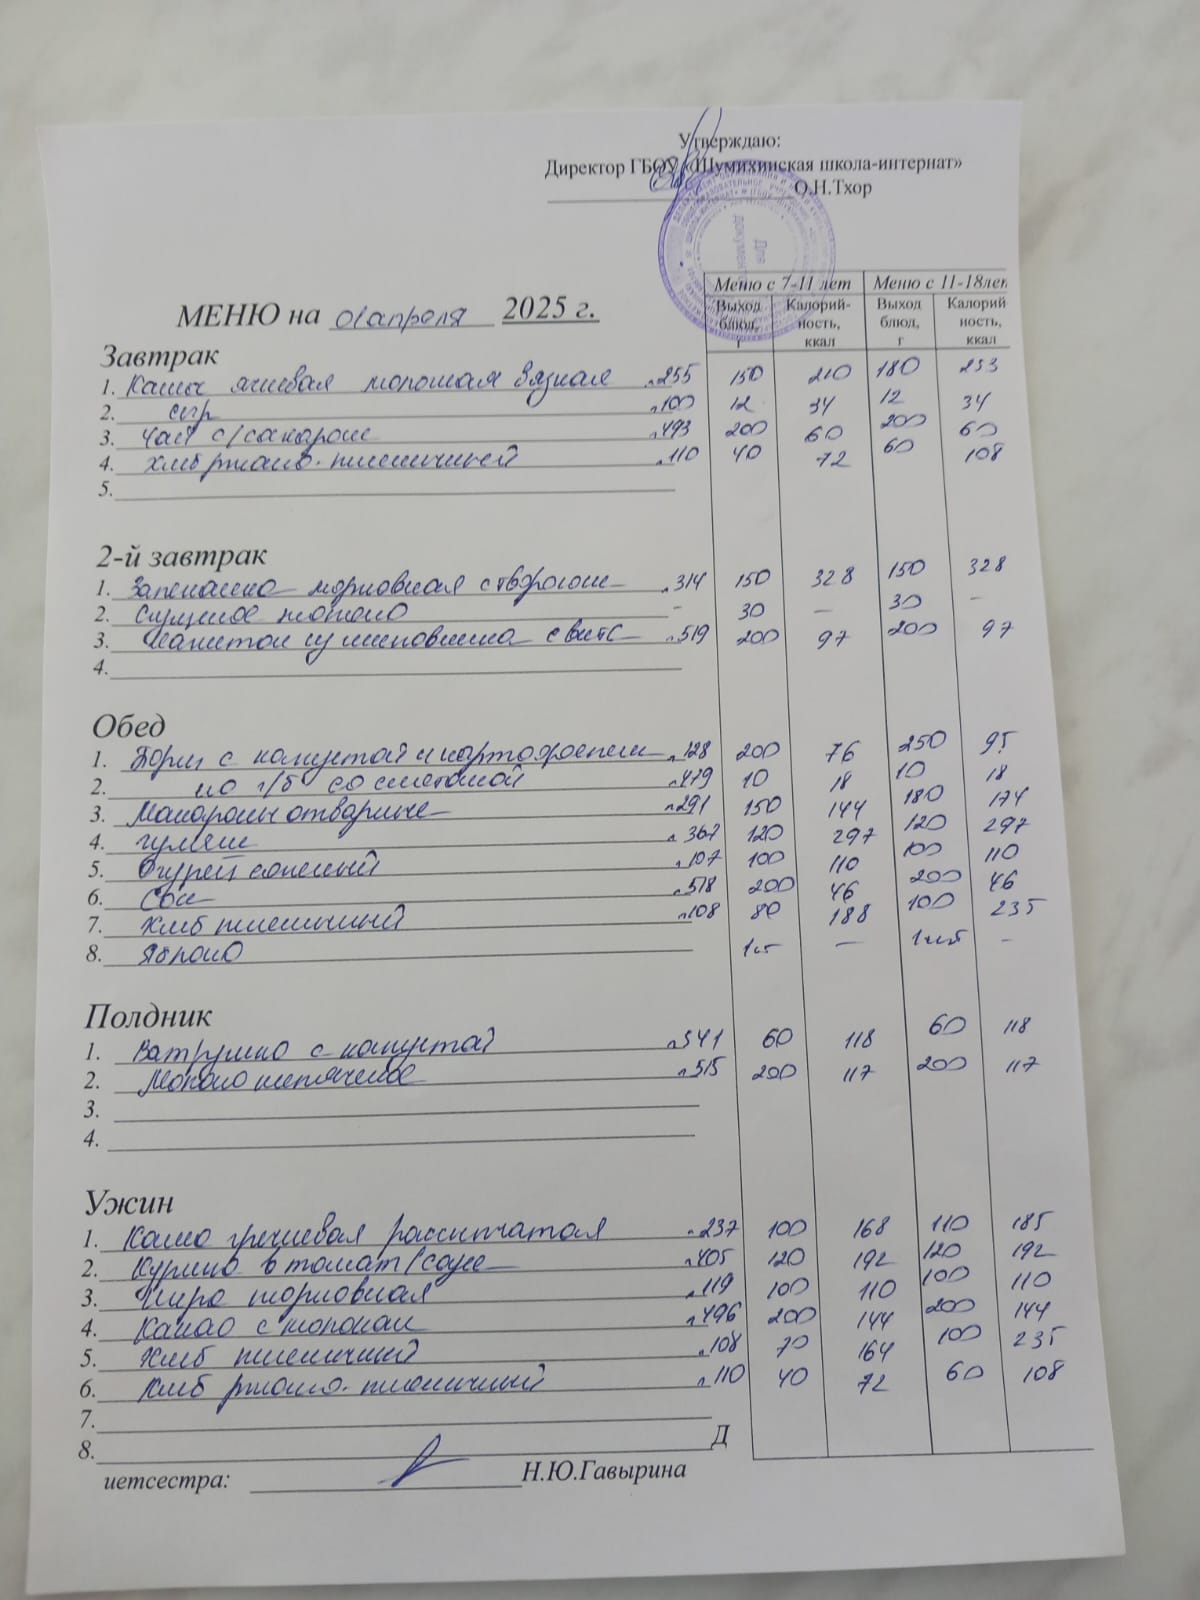 Утверждаю:
Директор ГБОУ «Шумихинская школа-интернат»
О.Н.Тхор
Для документов
МЕНЮ на 01 апреля 2025 г.
Меню с 7-11 лет Меню с 11-18лет
Выход блюд, г Калорий-ность, ккал Выход блюд, г Калорий ность, ккал
Завтрак
1. Каша ячневая молочная вязкая 255 150 210 180 253
2. сыр 100 12 34 12 34
3. Чай с/сахаром 493 200 60 200 60
4. Хлеб ржано-пшеничный 110 40 72 60 108
5.
2-й завтрак
1. Запеканка морковная с творогом 314 150 328 150 328
2. Сгущное молоко - 30 - 30 -
3. Напиток из шиповника с вит С 519 200 97 200 97
4.
Обед
1. Борщ с капустой и картофелем 128 200 76 250 95
2. на к/б со сметаной 479 10 18 10 18
3. Макароны отварные 291 150 144 180 174
4. гуляш 367 120 297 120 297
5. Огурец соленый 107 100 110 100 110
6. Сок 518 200 46 200 46
7. Хлеб пшеничный 108 80 188 100 235
8. Яблоко 1шт - 1шт -
Полдник
1. Ватрушка с капустой 541 60 118 60 118
2. Молоко кипяченое 515 200 117 200 117
3.
4.
Ужин
1. Каша гречневая рассыпчатая 237 100 168 110 185
2. Курица в томат/соусе 405 120 192 120 192
3. Икра морковная 119 100 110 100 110
4. Какао с молоком 496 200 144 200 144
5. Хлеб пшеничный 108 70 164 100 235
6. Хлеб ржано-пшеничный 110 40 72 60 108
7.
8. Д
иетсестра: Н.Ю.Гавырина